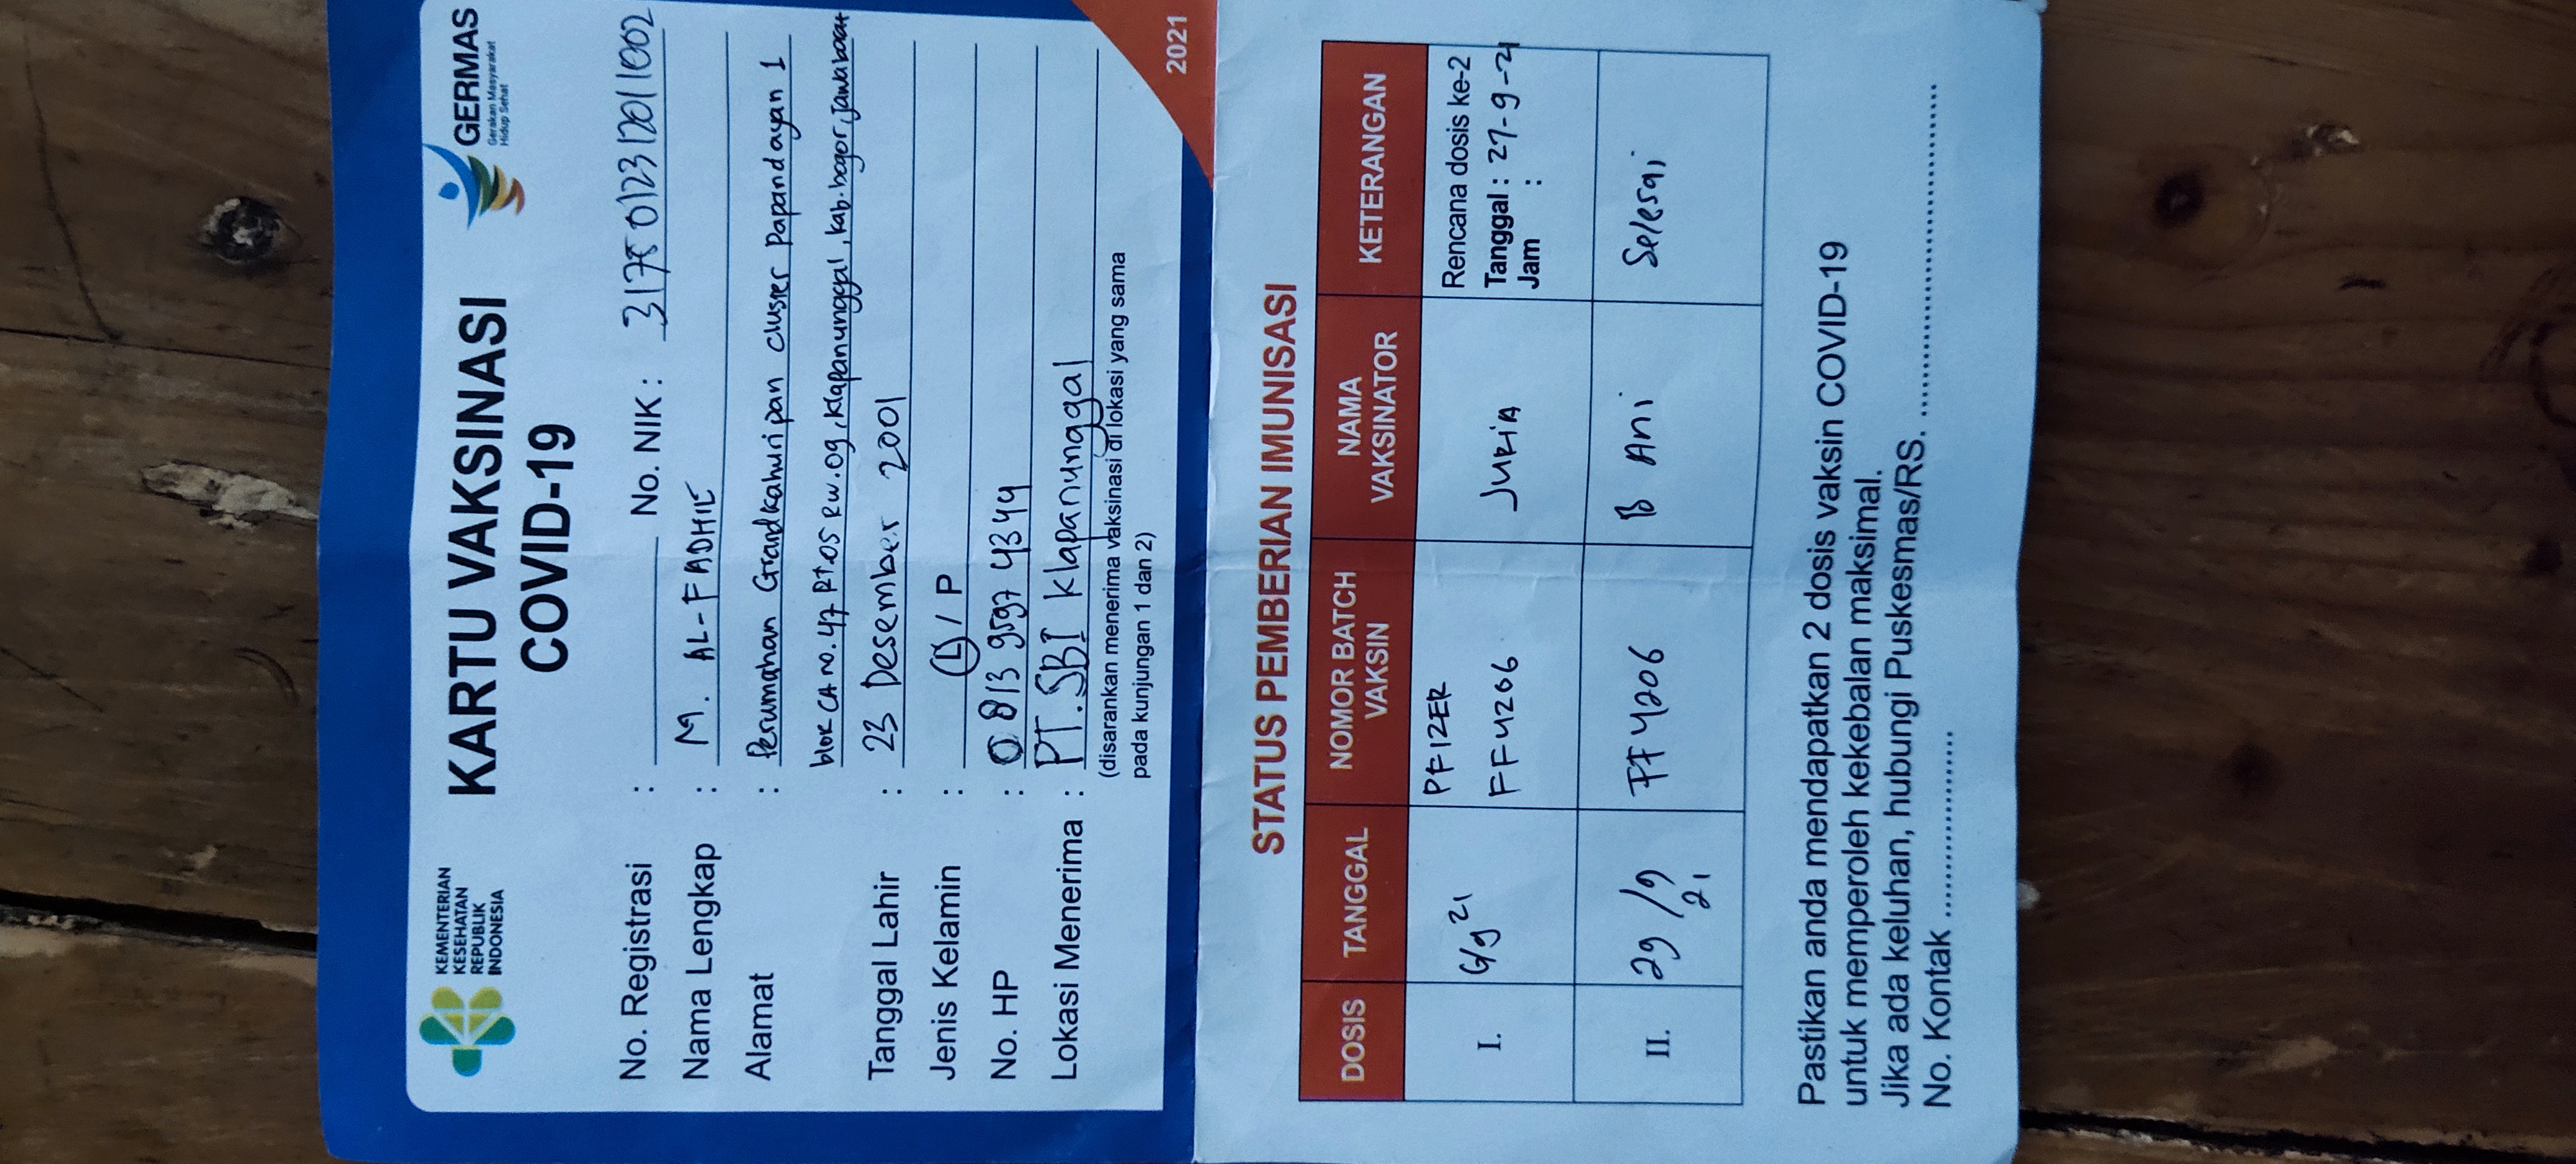 KEMENTERIAN
KESEHATAN
REPUBLIK
INDONESIA
KARTU VAKSINASI
COVID-19
GERMAS
Gerakan Masyarakat
Hidup Sehat
No. Registrasi : No. NIK : 3175012312011002
Nama Lengkap : M. AL-FADHIL
Alamat : Perumahan Grandkahuripan cluster Papandayan 1
blok CA no. 47 Rt.05 Rw.09, Klapanunggal, kab. bogor, jawa barat
Tanggal Lahir : 23 Desember 2001
Jenis Kelamin : L / P
No. HP : 0813 9597 4344
Lokasi Menerima : PT. SBI Klapanunggal
(disarankan menerima vaksinasi di lokasi yang sama
pada kunjungan 1 dan 2)
2021
STATUS PEMBERIAN IMUNISASI
DOSIS TANGGAL NOMOR BATCH VAKSIN NAMA VAKSINATOR KETERANGAN
I. 6/9 21 PFIZER FF4206 JURIA Rencana dosis ke-2
Tanggal : 27-9-21
Jam :
II. 29/9 21 FF4206 B Ani Selesai
Pastikan anda mendapatkan 2 dosis vaksin COVID-19
untuk memperoleh kekebalan maksimal.
Jika ada keluhan, hubungi Puskesmas/RS. ....................................
No. Kontak ....................